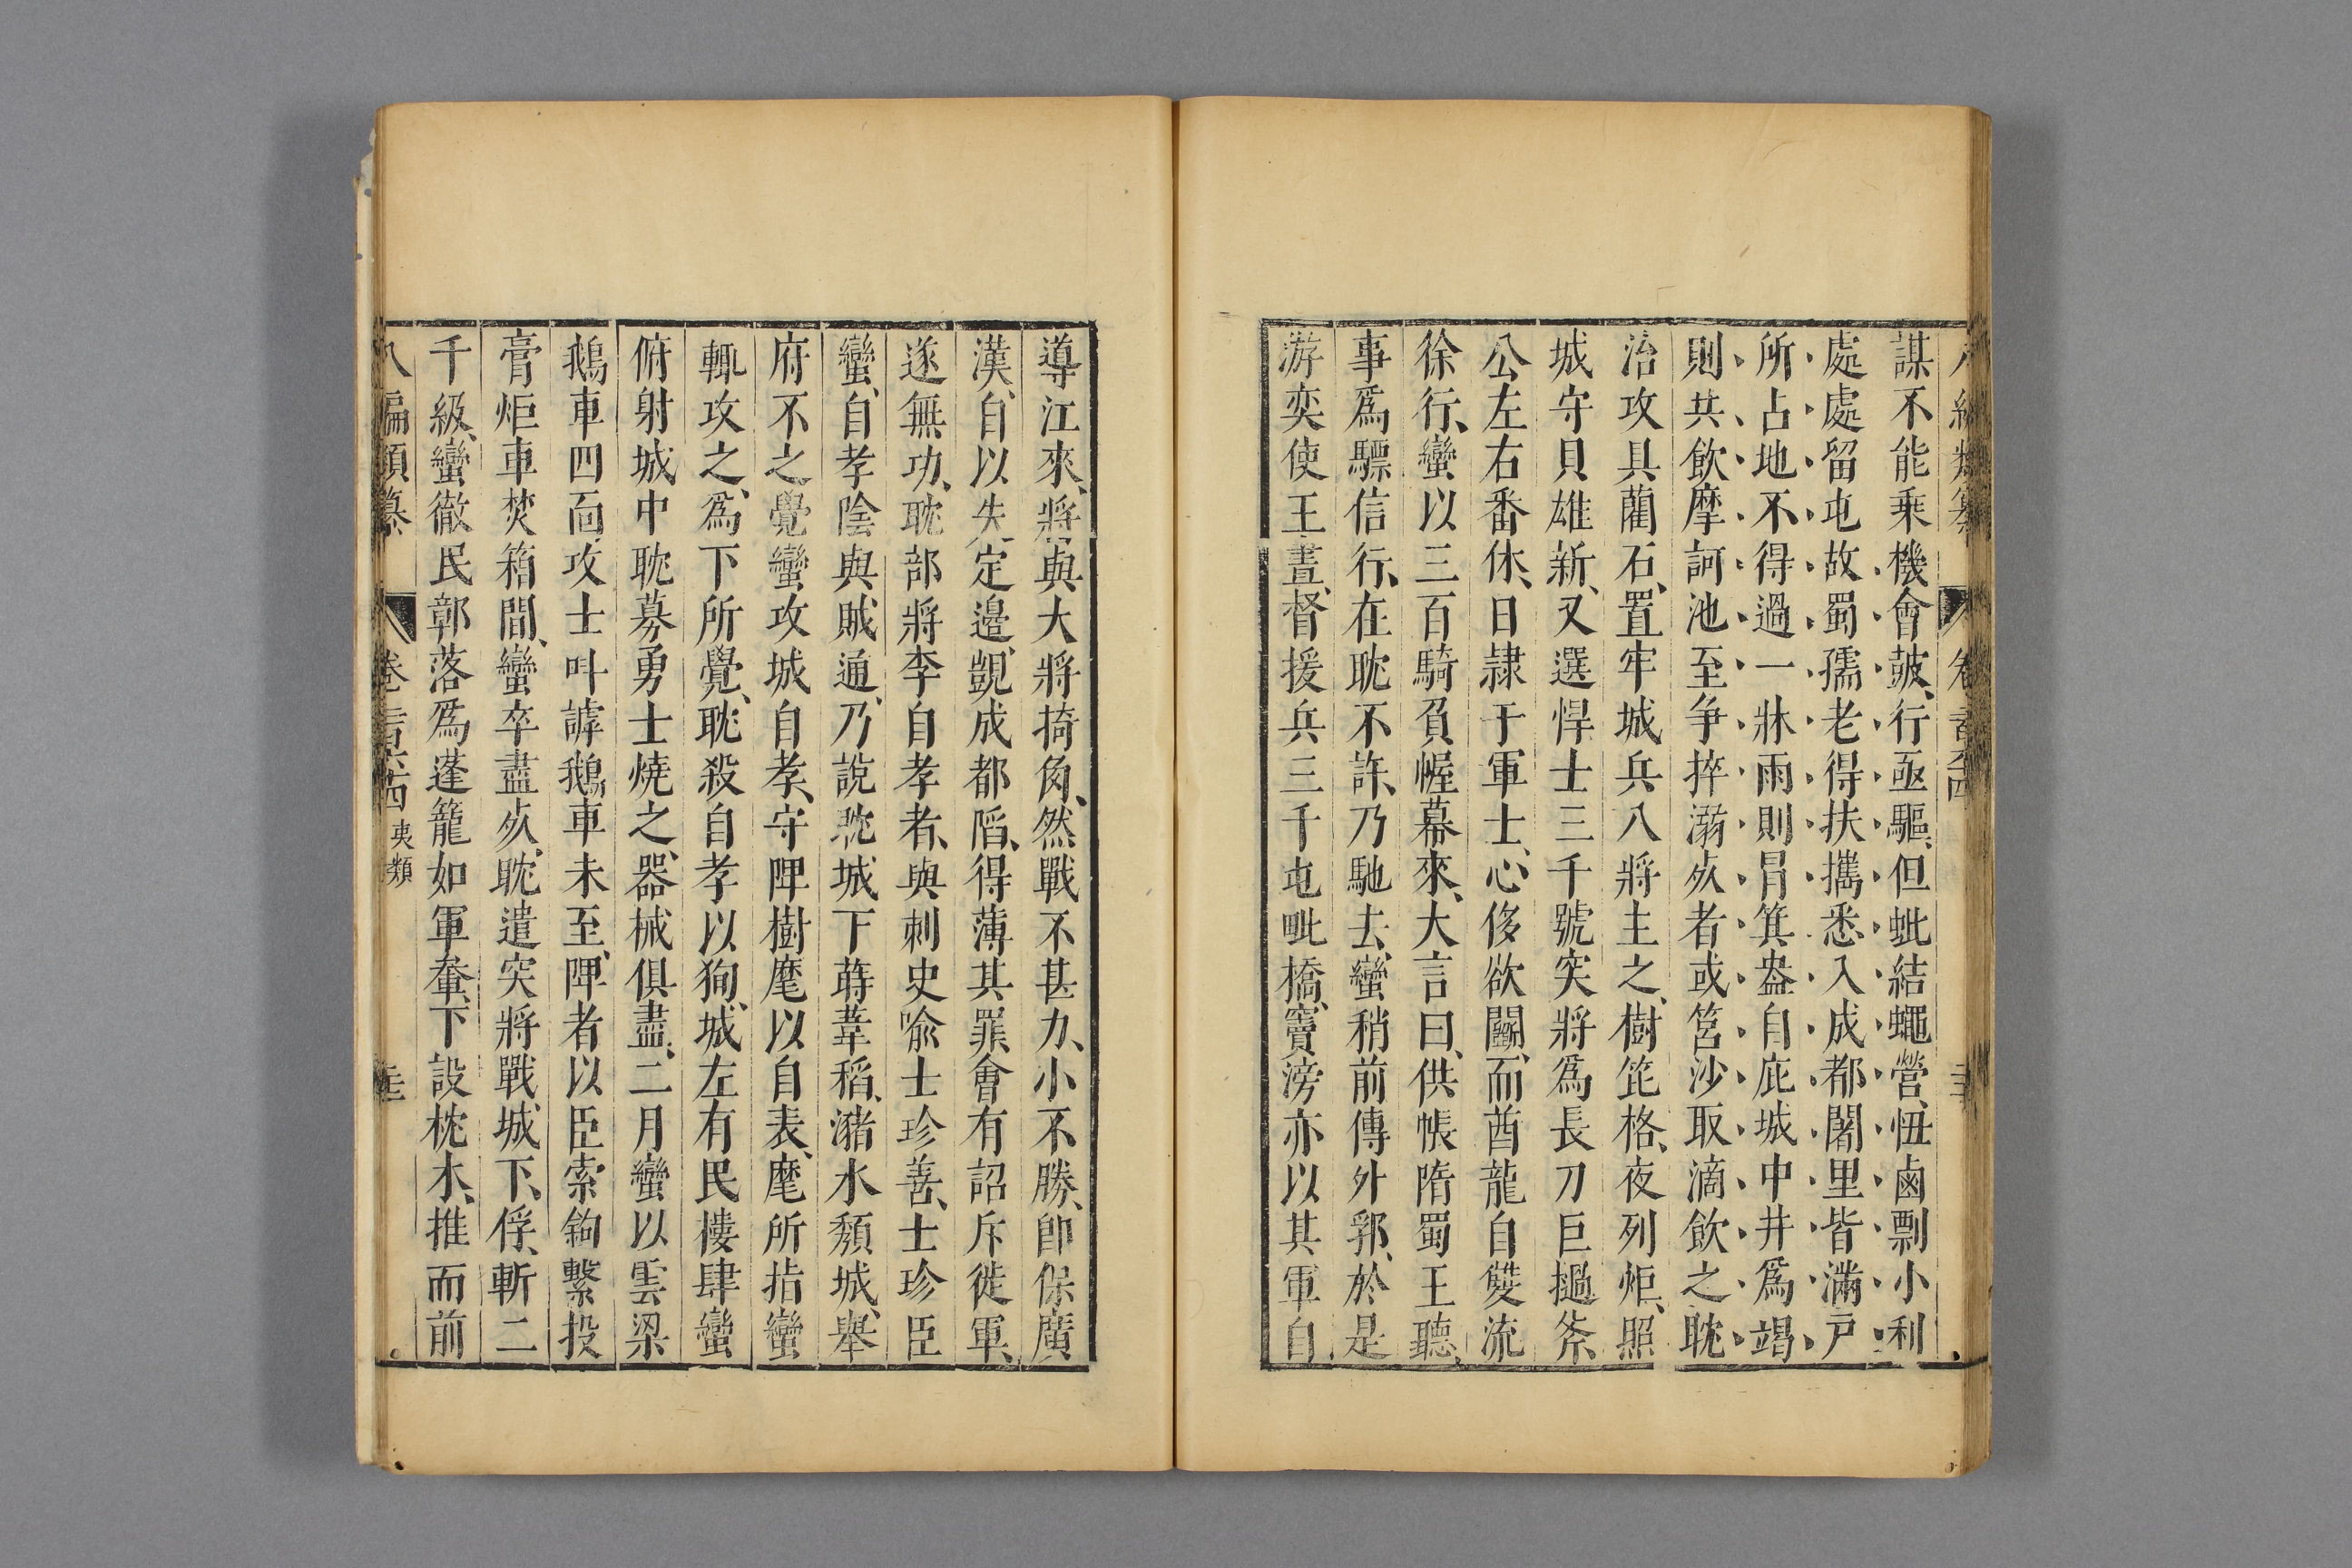 謀不能乘機會皷、行亟驅、但蚍結蠅營、忸鹵剽小利
處處留屯故蜀孺老得扶攜悉入成都闍里皆滿戸
所占地不得過一牀雨則冒箕盎自庇城中井爲竭
則共飲摩訶池至争捽溺㱙者或笤沙取滴飲之耽
治攻具藺石、置牢城兵八將主之、樹箆格、夜列炬、照
城守貝雄新、又選悍士三千號突將爲長刀巨撾斧、
公左右番休、日隷于軍士、心、侈欲鬬、而酋龍自雙流
徐行、蠻以三百騎負幄幕來、大言曰、供帳隋蜀王聽、
事爲驃信行、在耽不許、乃馳去、蠻稍前傳外郛、於是
游奕使王晝、督援兵三千屯毗橋、竇滂亦以其軍自
導江來、將與大將掎角、然戰不甚力、小不勝、卽保廣
漢、自以失定邊、覬成都䧟、得薄其罪、會有詔斥徙軍、
遂無功、耽部將李自孝者、與刺史喩士珍善、士珍臣
蠻、自孝陰與賊通、乃說耽城下蒔葦稻、瀦水頽城、舉
府不之覺、蠻攻城自孝、守陴樹麾以自表、麾所指蠻
輒攻之、爲下所覺、耽殺自孝以狥、城左有民樓肆蠻
俯射城中耽募勇士燒之、器械俱盡、二月蠻以雲梁
鵝車四面、攻士呌譁鵝車未至、陴者以臣索鉤繫投
膏炬車焚箱間、蠻卒盡㱙、耽遣突將戰城下、俘、斬二
千級、蠻徹民鄣落爲蓬籠如軍𡙇、下設枕木、推而前
八編類纂 卷二百六十四 夷類